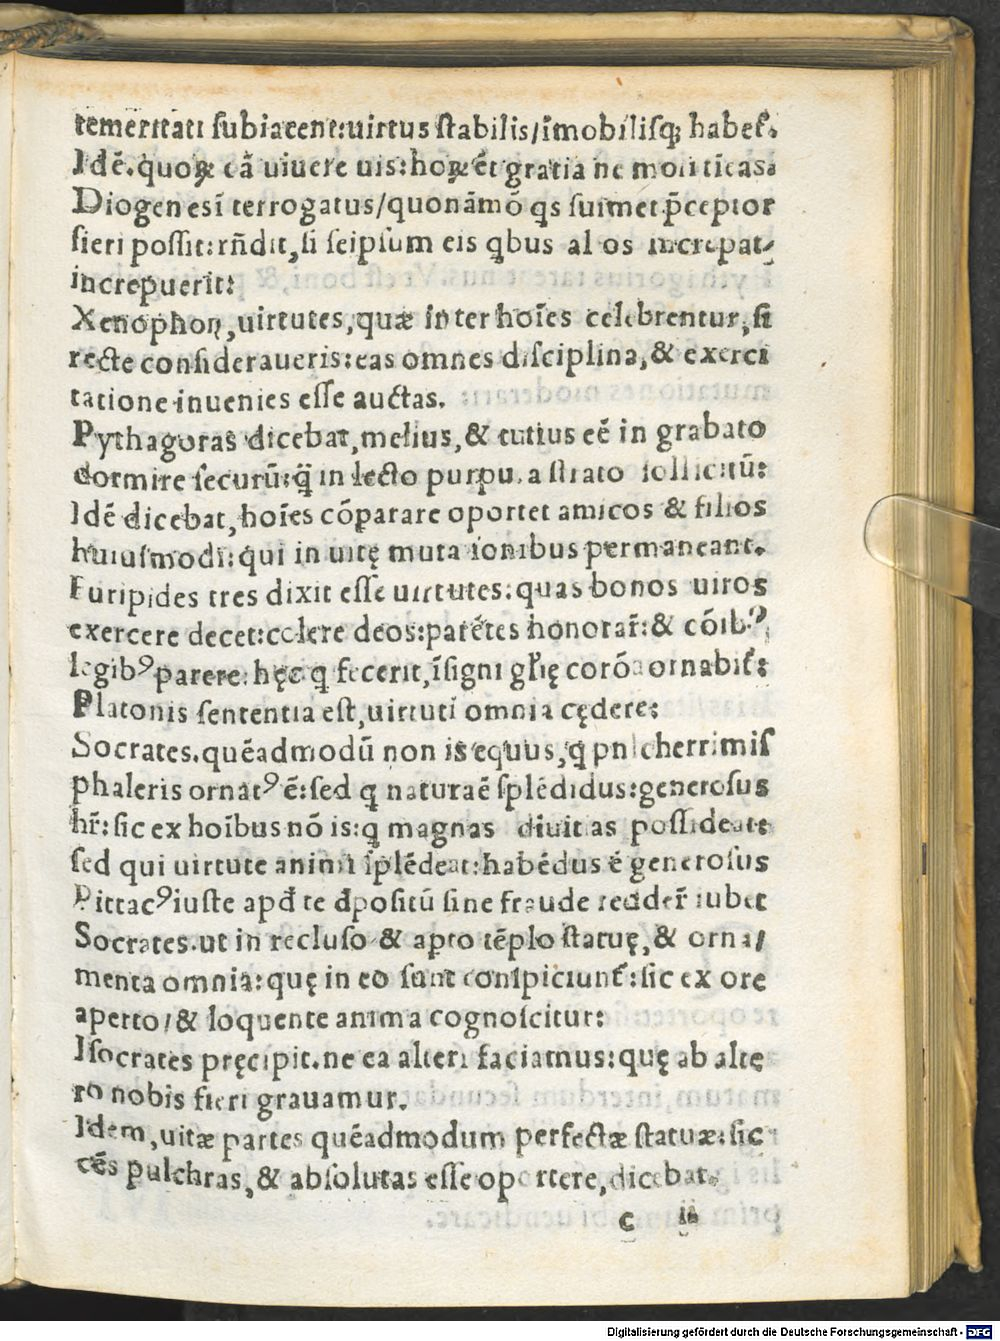 temeritati subiacent:uirtus stabilis/īmobilisq; habet̄.
Idē.quoꝝ cā uiuere uis:hoꝝ ēt gratia ne mori ticas.
Diogenesī terrogatus/quonāmō qs suimet p̄ceptor
fieri possit:rn̄dit,si seipsum eis qbus al os increpat/
increpuerit:
Xenophon,uirtutes,quæ inter hoīes celebrentur,si
recte consideraueris:eas omnes disciplina,& exerci
tatione inuenies esse auctas.
Pythagoras dicebat,melius,& tutius eē in grabato
dormire securū:q̄ in lecto purpu.a strato sollicitū:
Idē dicebat,hoīes cōparare oportet amicos & filios
huiusmodi:qui in uitę muta ionibus permaneant.
Euripides tres dixit esse uirtutes:quas bonos uiros
exercere decet:colere deos:parētes honorar̄:& cōib⁹,
legib⁹ parere:hęc q fecerit,īsigni gl̄ię corōa ornabit̄:
Platonis sententia est,uirtuti omnia cędere:
Socrates.quēadmodū non is equus,q pulcherrimis
phaleris ornat⁹ ē:sed q naturaē splēdidus:generosus
hr̄:sic ex hoībus nō is:q magnas diuitias possideate
sed qui uirtute animi splēdeat:habēdus ē generosus
Pittac⁹iuste apđ te đpositū sine fraude redder̄ iubet
Socrates.ut in recluso & apto tēplo statuę,& orna/
menta omnia:quę in eo sunt conspiciunt̄:sic ex ore
aperto/& loquente anima cognoscitur:
Isocrates pręcipit.ne ea alteri faciamus:quę ab alte
ro nobis fieri grauamur.
Idem,uitæ partes quēadmodum perfectæ statuæ:sic
cēs pulchras,& absolutas esse op rtere,dicebat.
c ii
Digitalisierung gefördert durch die Deutsche Forschungsgemeinschaft - DFG